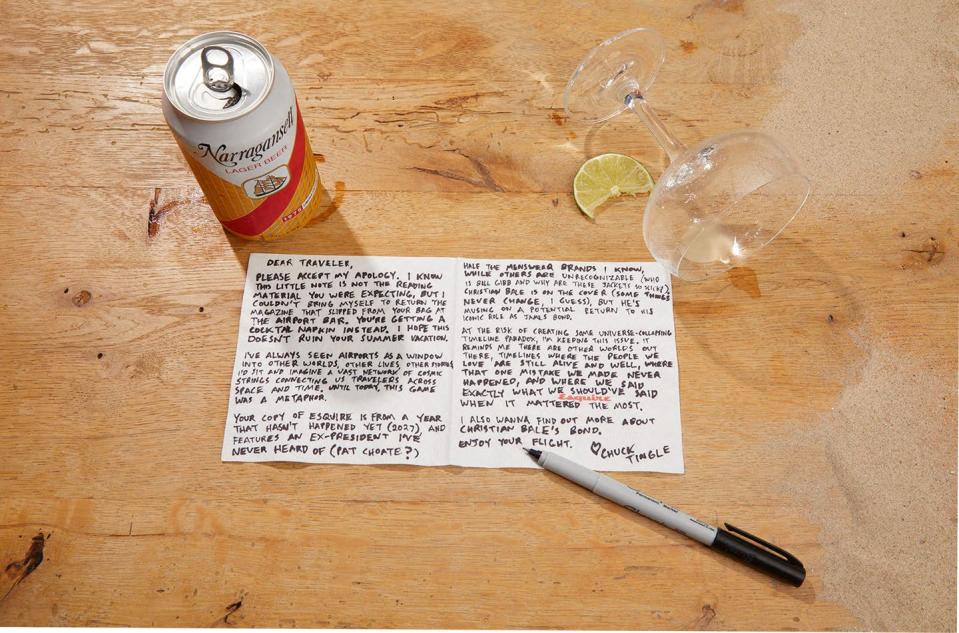 Narragansett
LAGER BEER
DEAR TRAVELER,
PLEASE ACCEPT MY APOLOGY. I KNOW
THIS LITTLE NOTE IS NOT THE READING
MATERIAL YOU WERE EXPECTING, BUT I
COULDN'T BRING MYSELF TO RETURN THE
MAGAZINE THAT SLIPPED FROM YOUR BAG AT
THE AIRPORT BAR. YOU'RE GETTING A
COCKTAIL NAPKIN INSTEAD. I HOPE THIS
DOESN'T RUIN YOUR SUMMER VACATION.
I'VE ALWAYS SEEN AIRPORTS AS A WINDOW
INTO OTHER WORLDS, OTHER LIVES, OTHER
I'D SIT AND IMAGINE A VAST NETWORK OF COSMIC
STRINGS CONNECTING US TRAVELERS ACROSS
SPACE AND TIME. UNTIL TODAY, THIS GAME
WAS A METAPHOR.
YOUR COPY OF ESQUIRE IS FROM A YEAR
THAT HASN'T HAPPENED YET (2027) AND
FEATURES AN EX-PRESIDENT I'VE
NEVER HEARD OF (PAT CHOATE?)
HALF THE MENSWEAR BRANDS I KNOW,
WHILE OTHERS ARE UNRECOGNIZABLE (WHO
IS BILL GIBB AND WHY ARE THESE JACKETS SO SICK?)
CHRISTIAN BALE IS ON THE COVER (SOME THINGS
NEVER CHANGE, I GUESS), BUT HE'S
MUSING ON A POTENTIAL RETURN TO HIS
ICONIC ROLE AS JAMES BOND.
AT THE RISK OF CREATING SOME UNIVERSE-COLLAPSING
TIMELINE PARADOX, I'M KEEPING THIS ISSUE. IT
REMINDS ME THERE ARE OTHER WORLDS OUT
THERE, TIMELINES WHERE THE PEOPLE WE
LOVE ARE STILL ALIVE AND WELL, WHERE
THAT ONE MISTAKE WE MADE NEVER
HAPPENED, AND WHERE WE SAID
EXACTLY WHAT WE SHOULD'VE SAID
Esquire
WHEN IT MATTERED THE MOST.
I ALSO WANNA FIND OUT MORE ABOUT
CHRISTIAN BALE'S BOND.
ENJOY YOUR FLIGHT.
♡CHUCK
TINGLE